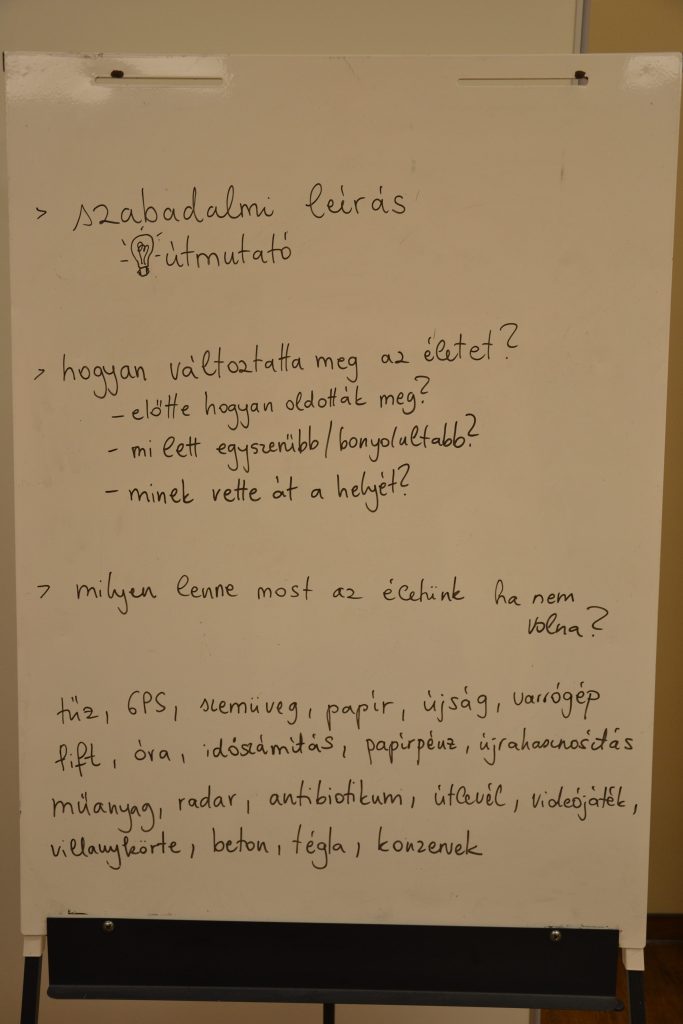 > szabadalmi leírás
útmutató
> hogyan változtatta meg az életet?
- előtte hogyan oldották meg?
- mi lett egyszerűbb/bonyolultabb?
- minek vette át a helyét?
> milyen lenne most az életünk ha nem
volna?
tűz, GPS, szemüveg, papír, újság, varrógép
lift, óra, időszámítás, papírpénz, újrahasznosítás
műanyag, radar, antibiotikum, útlevél, videójáték,
villanykörte, beton, tégla, konzervek